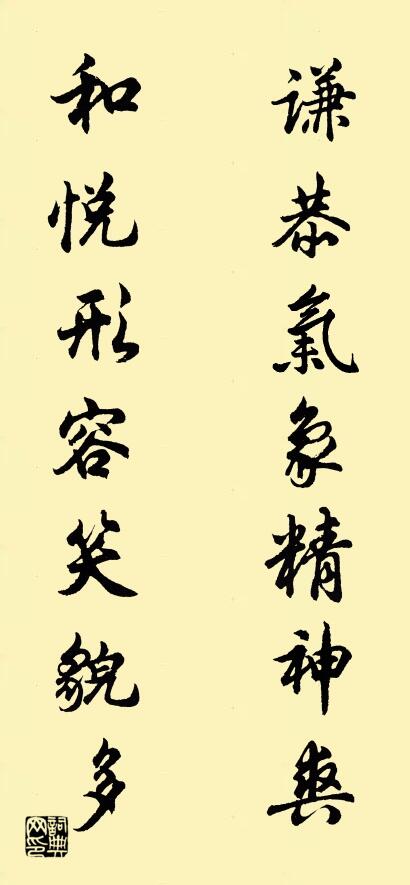 謙恭氣象精神爽
和悅形容笑貌多
詞典网印